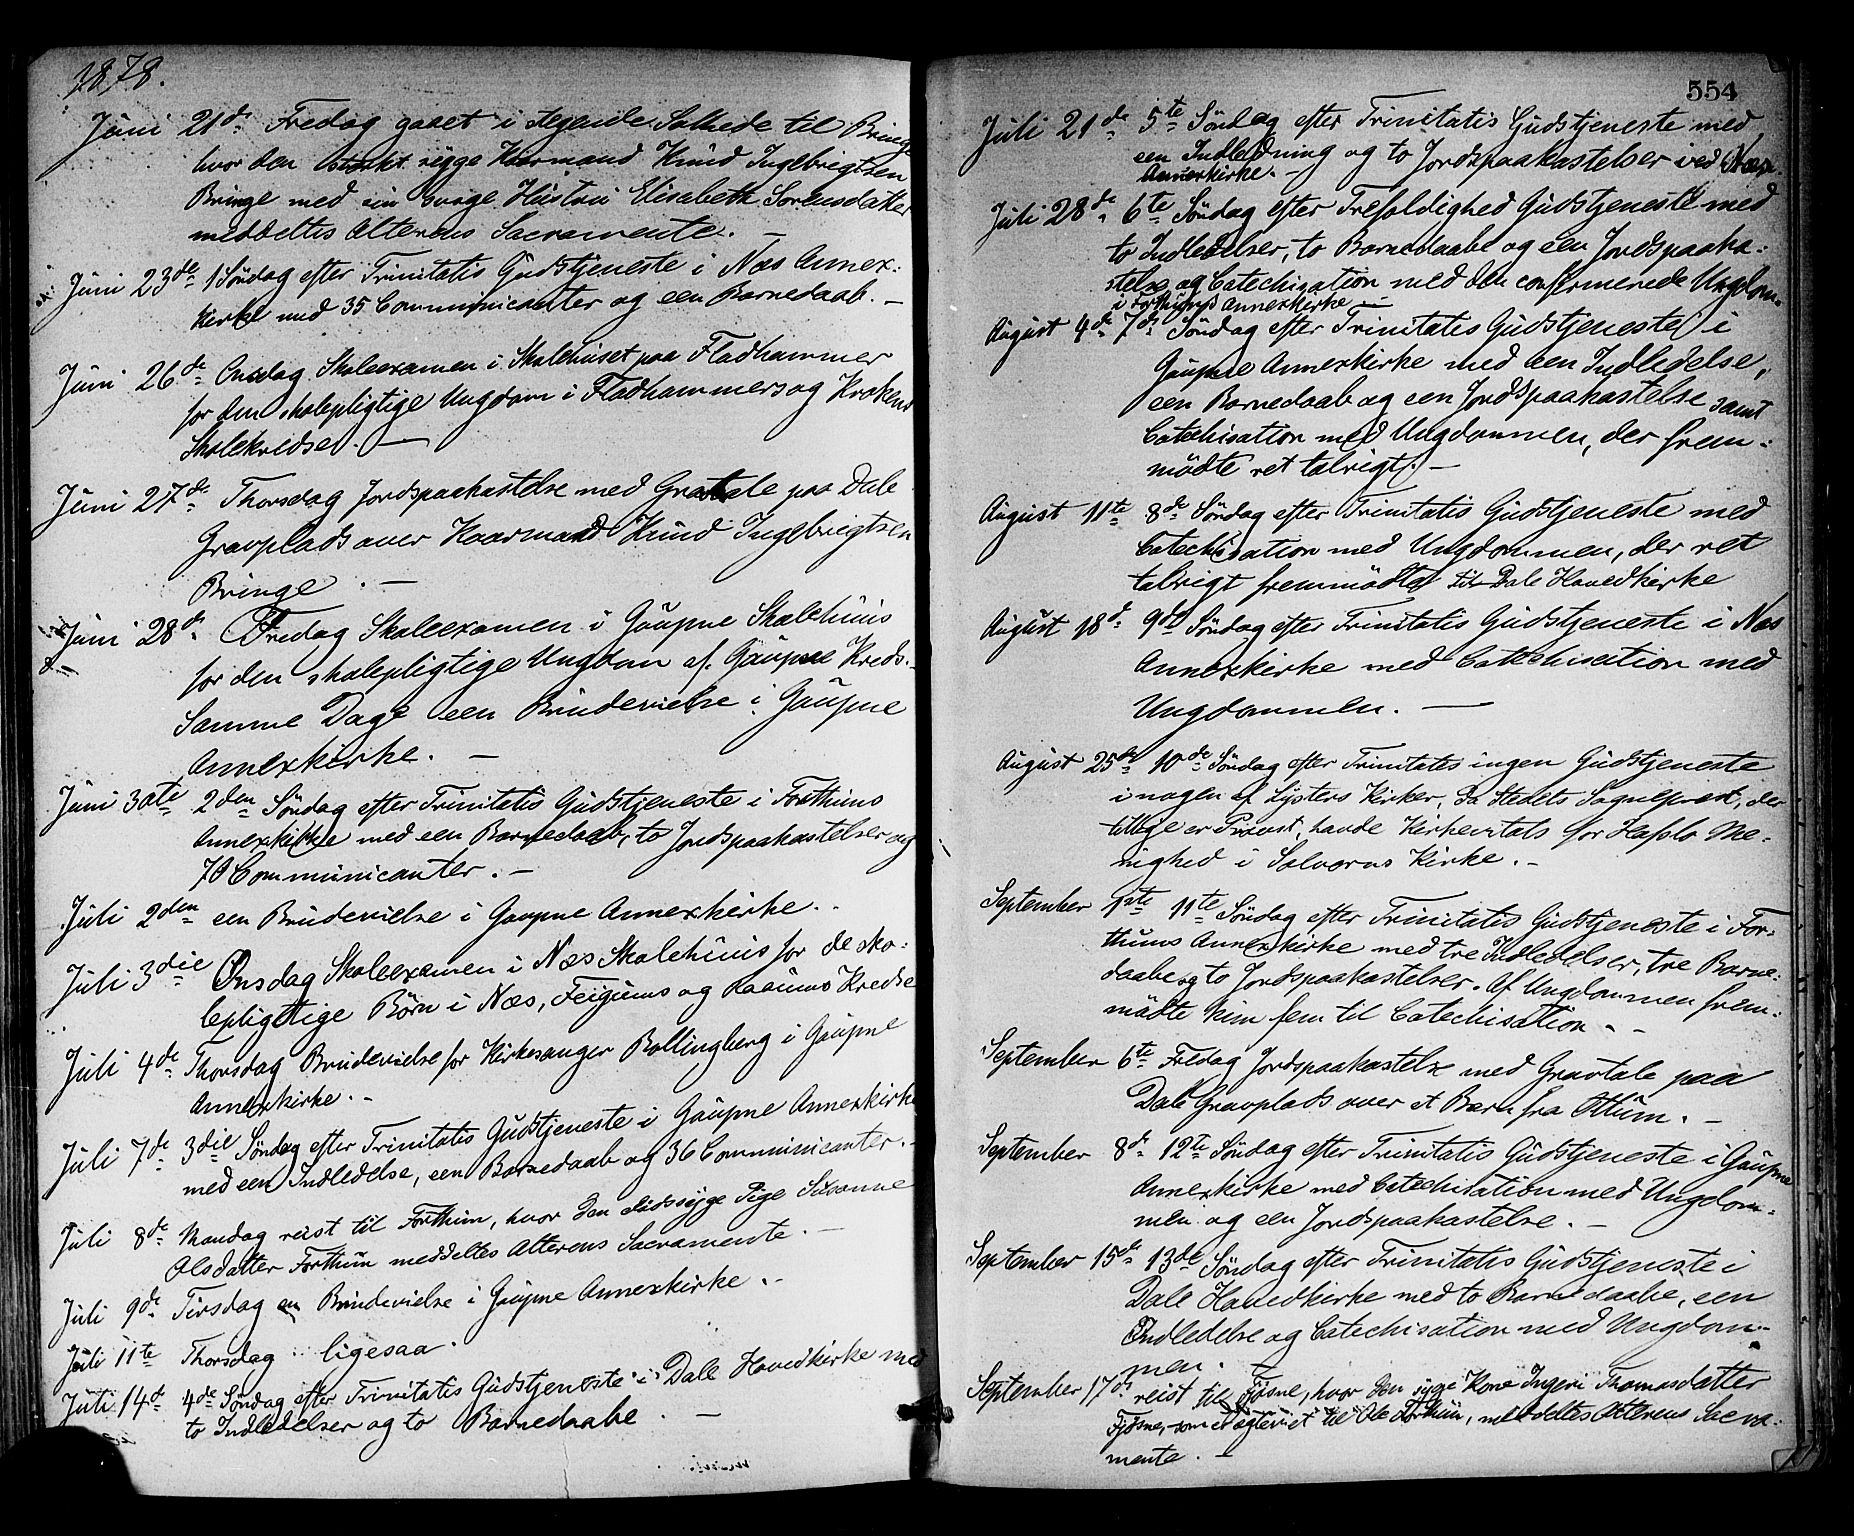 1878.
Juni 21de Fredag gaaet i øsende Sølede til Bringe
hvor den stærkt sygge Kaarmand Knud Ingebrigtsen
Bringe med sin svage Hustru Elisabeth Sørensdatter
meddeltes Alterens Sacramente. -
Juni 23de 1 Søndag efter Trinitatis Gudstjeneste i Næs Annex-
kirke med 35 Communicanter og een Barnedaab. -
Juni 26de Onsdag Skoleexamen i Skolehuset paa Fladhammer
for den skolepligtige Ungdom i Fladhammers og Krokens
Skolekredse. -
Juni 27de Thorsdag Jordspaakastelse med Gravtale paa Dale
Gravplads over Kaarmand Knud Ingebrigtsen
Bringe. -
Juni 28de Fredag Skoleexamen i Gaupne Skolehuus
for den skolepligtige Ungdom af Gaupne Kreds. -
Samme Dage een Brudevielse i Gaupne
Annexkirke. -
Juni 30te 2den Søndag efter Trinitatis Gudstjeneste i Forthuns
Annexkirke med een Barnedaab, to Jordspaakastelser og
70 Communicanter. -
Juli 2den een Brudevielse i Gaupne Annexkirke. .
Juli 3die Onsdag Skoleexamen i Næs Skolehuus for de sko-
lepligtige Børn i Næs, Feigums og Raaums Kredse
Juli 4de Thorsdag Brudevielse for Kirkesanger Bollingberg i Gaupne
Annexkirke. -
Juli 7de 3die Søndag efter Trinitatis Gudstjeneste i Gaupne Annexkirke
med een Indledelse, een Barnedaab og 36 Communicanter. -
Juli 8de Mandag reist til Forthun, hvor den sidssyge Pige Susanne
Olsdatter Forthun meddeltes Alterens Sacramente. -
Juli 9de Tirsdag en Brudevielse i Gaupne Annexkirke. -
Juli 11te Thorsdag ligesaa.
Juli 14de 4de Søndag efter Trinitatis Gudstjeneste i Dale Hovedkirke med
to Indledelser og to Barnedaabe. -
554
Juli 21de 5te Søndag efter Trinitatis Gudstjeneste med
een Indledning og to Jordspaakastelser ved Næs
Annexkirke. -
Juli 28de 6te Søndag efter Trefoldighed Gudstjeneste med
to Indledelser, to Barnedaabe og een Jordspaaka-
stelse og Catechisation med den confirmerede Ungdom
i Forthuns Annexkirke -
August 4de 7de Søndag efter Trinitatis Gudstjeneste i
Gaupne Annexkirke med een Indledelse,
een Barnedaab og een Jordspaakastelse samt
Catechisation med Ungdommen, der frem-
mødte ret talrigt. -
August 11te 8de Søndag efter Trinitatis Gudstjeneste med
Catechisation med Ungdommen, der ret
talrigt fremmødte til Dale Hovedkirke
August 18de 9de Søndag efter Trinitatis Gudstjeneste i Næs
Annexkirke med Catechisation med
Ungdommen. -
August 25de 10de Søndag efter Trinitatis ingen Gudstjeneste
i nogen af Lysters Kirker, da Stedets Sognepræst, der
tillige er Provst, havde Kirkevisitats for Hafslo Me-
nighed i Solvorns Kirke. -
September 1ste 11te Søndag efter Trinitatis Gudstjeneste i For-
thuns Annexkirke med tre Indledelser, tre Barne-
daabe og to Jordspaakastelser. Af Ungdommen frem-
mødte kun fem til Catechisation. -
September 6te Fredag Jordspaakastelse med Gravtale paa
Dale Gravplads over et Barn fra Ottum. -
September 8de 12te Søndag efter Trinitatis Gudstjeneste i Gaupne
Annexkirke med Catechisation med Ungdom-
men og een Jordspaakastelse. -
September 15de 13de Søndag efter Trinitatis Gudstjeneste i
Dale Hovedkirke med to Barnedaabe, een
Indledelse og Catechisation med Ungdom-
men.
September 17de reist til Fjøsne, hvor den sygge Kone Ingeri Thomasdatter
Fjøsne, som til Ole Forthun, meddeltes Alterens Sacra-
mente. -